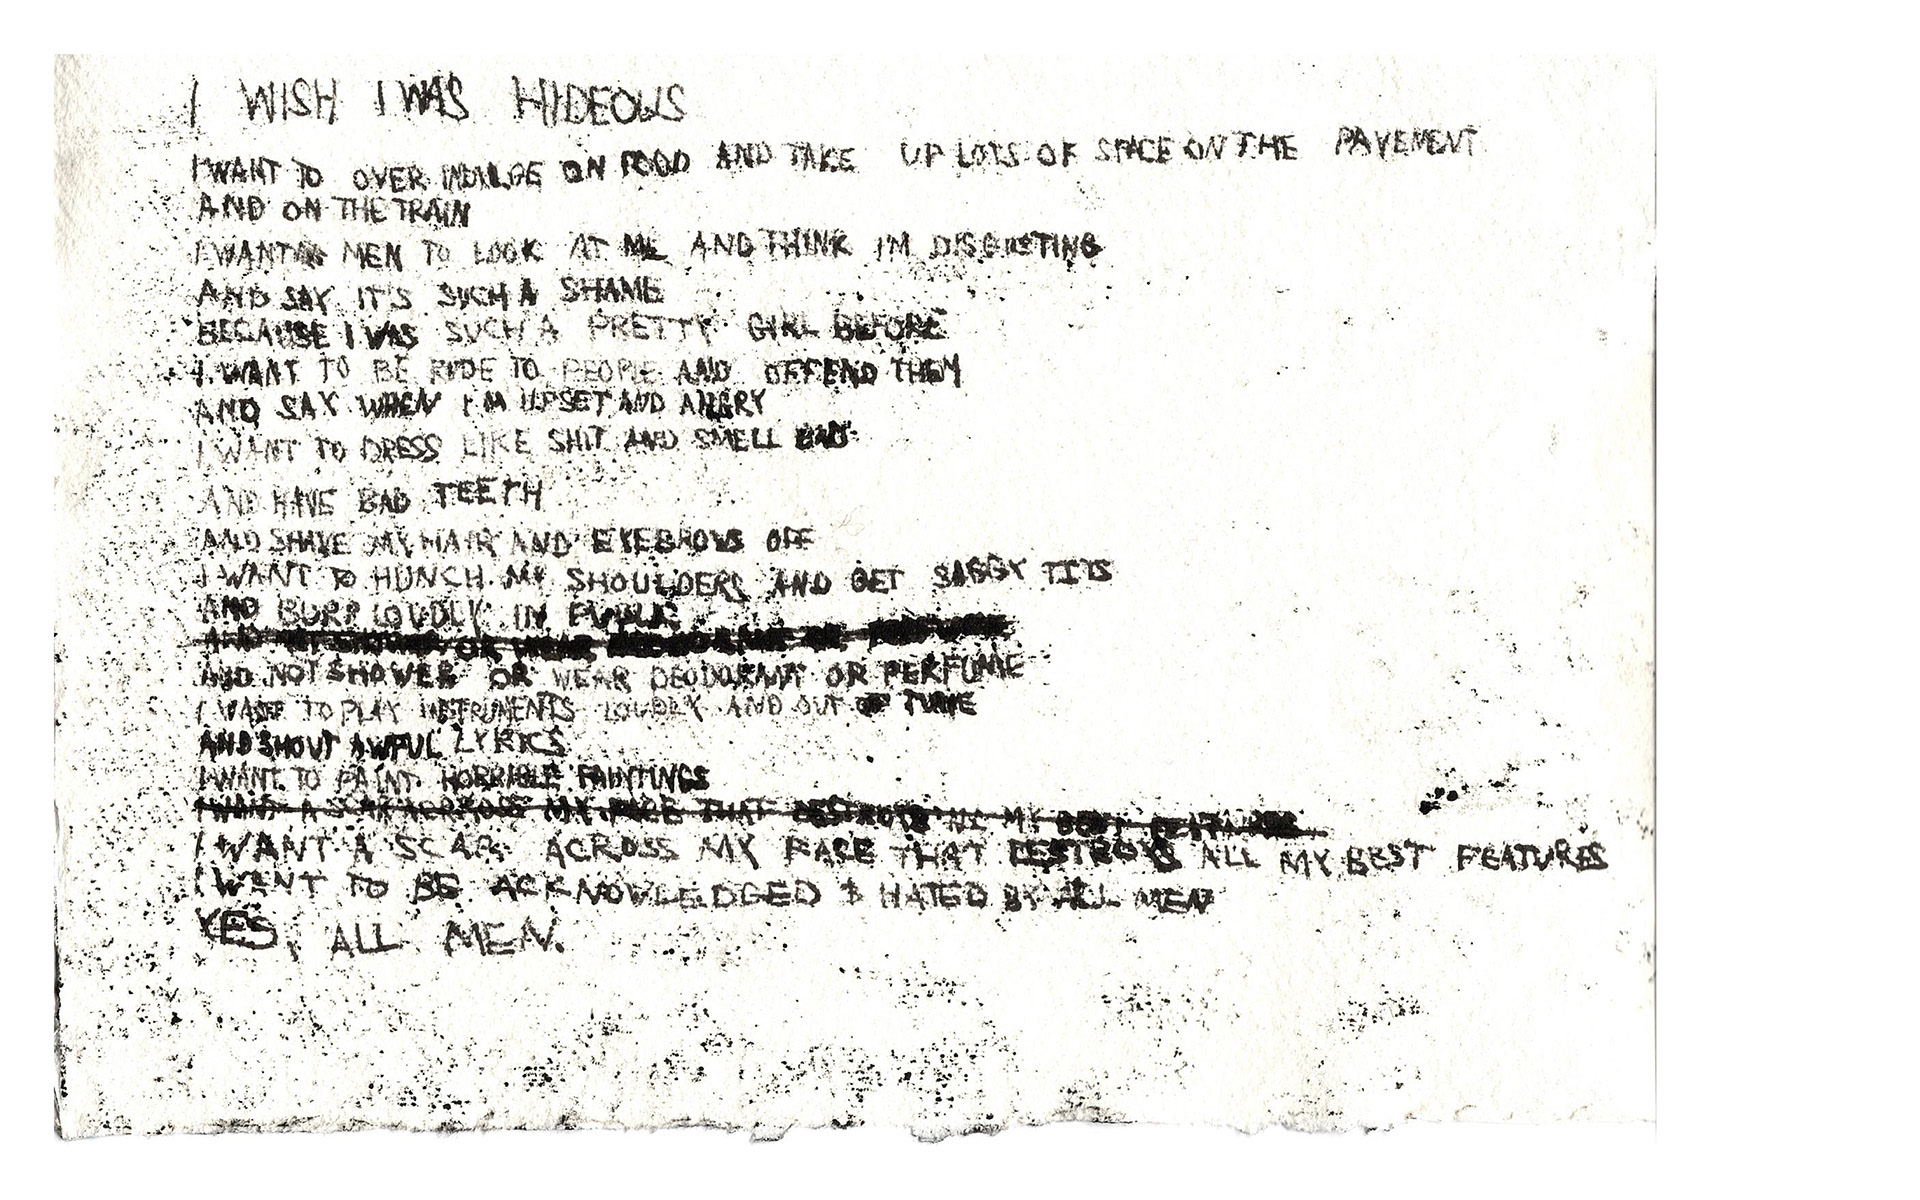 I WISH I WAS HIDEOUS
I WANT TO OVER INDULGE ON FOOD AND TAKE UP LOTS OF SPACE ON THE PAVEMENT
AND ON THE TRAIN
I WANT MEN TO LOOK AT ME AND THINK I'M DISGUSTING
AND SAY IT'S SUCH A SHAME
BECAUSE I WAS SUCH A PRETTY GIRL BEFORE
I WANT TO BE RUDE TO PEOPLE AND OFFEND THEM
AND SAY WHEN I'M UPSET AND ANGRY
I WANT TO DRESS LIKE SHIT AND SMELL BAD
AND HAVE BAD TEETH
AND SHAVE MY HAIR AND EYEBROWS OFF
I WANT TO HUNCH MY SHOULDERS AND GET SAGGY TITS
AND BURP LOUDLY IN PUBLIC
AND NOT SHOWER OR WEAR
AND NOT SHOWER OR WEAR DEODORANT OR PERFUME
I WANT TO PLAY INSTRUMENTS LOUDLY AND OUT OF TUNE
AND SHOUT AWFUL LYRICS
I WANT TO PAINT HORRIBLE PAINTINGS
I WANT A SCAR ACROSS MY FACE THAT DESTROYS ALL MY BEST FEATURES
I WANT A SCAR ACROSS MY FACE THAT DESTROYS ALL MY BEST FEATURES
I WANT TO BE ACKNOWLEDGED & HATED BY ALL MEN
YES, ALL MEN.